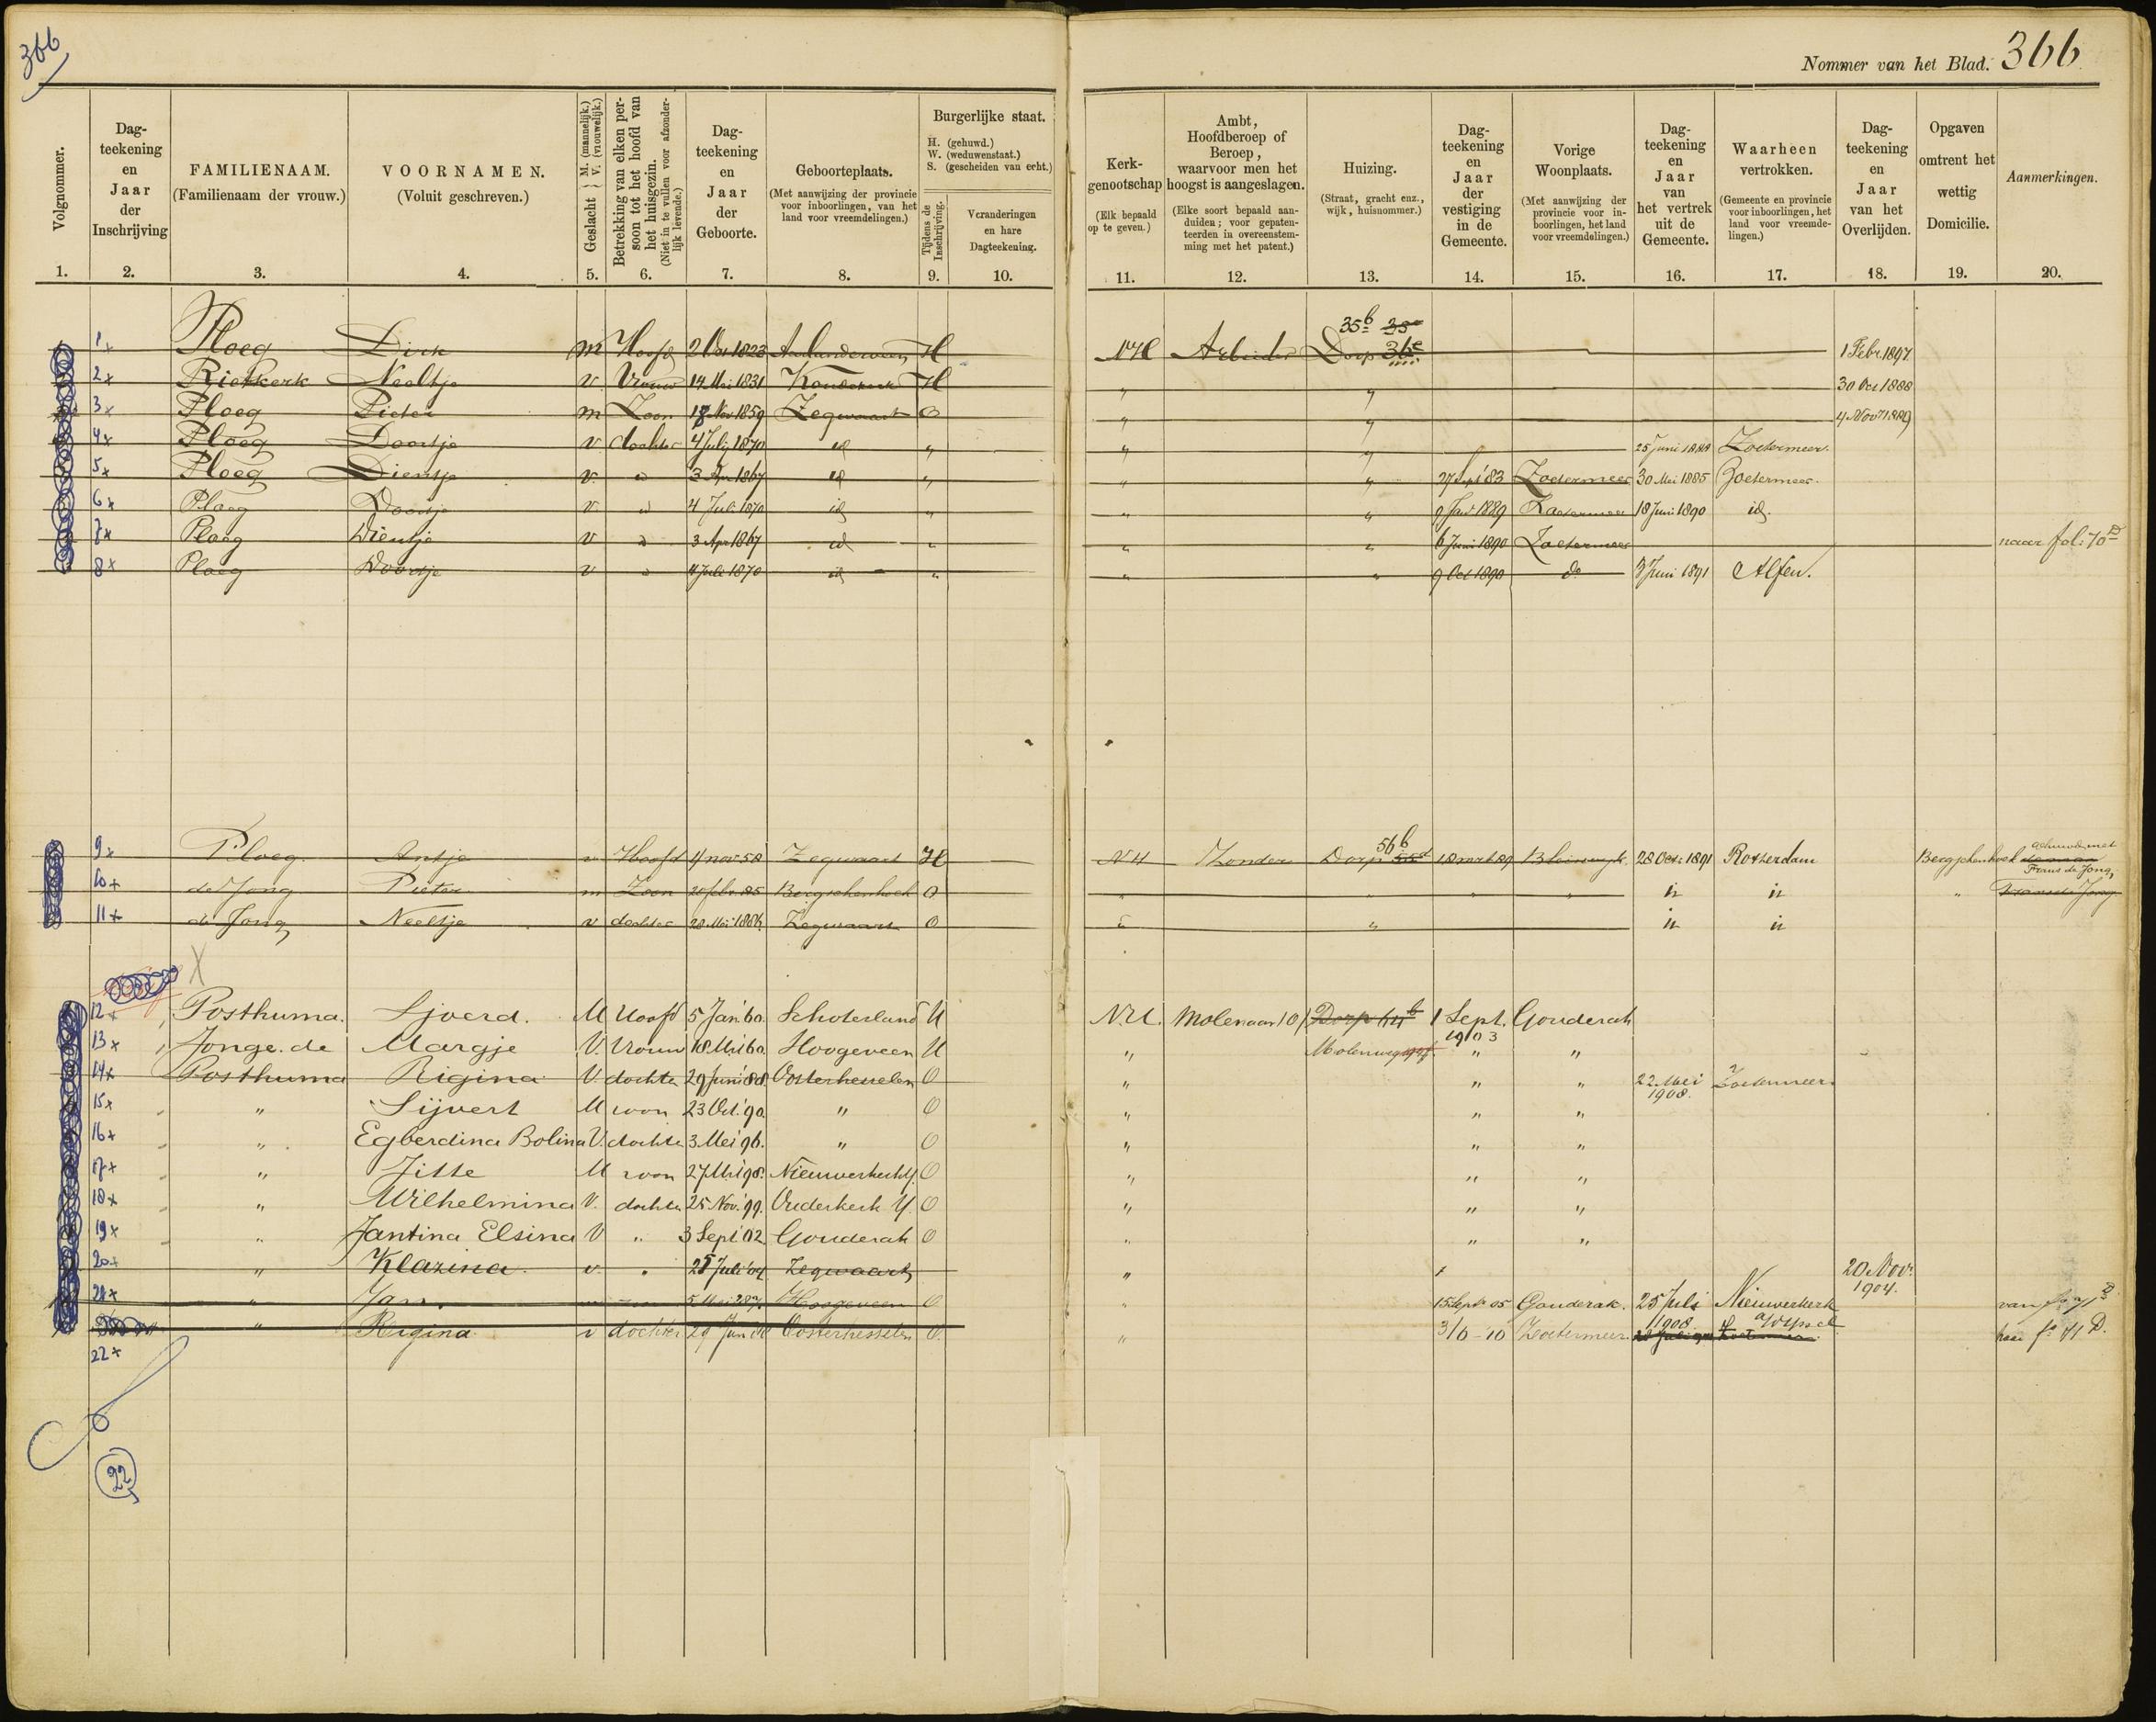 366
Nommer van het Blad. 366
Volgnommer.
1.
Dag-
teekening
en
Jaar
der
Inschrijving
2.
FAMILIENAAM.
(Familienaam der vrouw.)
3.
VOORNAMEN.
(Voluit geschreven.)
4.
Geslacht { M. (mannelijk.) V. (vrouwelijk.)
5.
Betrekking van elken per-
soon tot het hoofd van
het huisgezin.
(Niet in te vullen voor afzonder-
lijk levende.)
6.
Dag-
teekening
en
Jaar
der
Geboorte.
7.
Geboorteplaats.
(Met aanwijzing der provincie
voor inboorlingen, van het
land voor vreemdelingen.)
8.
Burgerlijke staat.
H. (gehuwd.)
W. (weduwenstaat.)
S. (gescheiden van echt.)
Tijdens de
Inschrijving.
9.
Veranderingen
en hare
Dagteekening.
10.
Kerk-
genootschap
(Elk bepaald
op te geven.)
11.
Ambt,
Hoofdberoep of
Beroep,
waarvoor men het
hoogst is aangeslagen.
(Elke soort bepaald aan-
duiden; voor gepaten-
teerden in overeenstem-
ming met het patent.)
12.
Huizing.
(Straat, gracht enz.,
wijk, huisnommer.)
13.
Dag-
teekening
en
Jaar
der
vestiging
in de
Gemeente.
14.
Vorige
Woonplaats.
(Met aanwijzing der
provincie voor in-
boorlingen, het land
voor vreemdelingen.)
15.
Dag-
teekening
en
Jaar
van
het vertrek
uit de
Gemeente.
16.
Waarheen
vertrokken.
(Gemeente en provincie
voor inboorlingen, het
land voor vreemde-
lingen.)
17.
Dag-
teekening
en
Jaar
van het
Overlijden.
18.
Opgaven
omtrent het
wettig
Domicilie.
19.
Aanmerkingen.
20.
35b
1x Ploeg Dirk m Hoofd 2 Oct 1823 H NH Arbeider Dorp 36e 1 Febr. 1897
2x Rietkerk Neeltje v. Vrouw 14 Mei 1831 Koudekerk H " " 30 Oct 1888
3x Ploeg Pieter m Zoon Nov 1859 Zegwaart O " " 4 Nov 1889
4x Ploeg Doortje v dochter 4 July 1870 id " " " 25 Juni Zoetermeer.
5x Ploeg Dientje v. " 3 Apr 1867 id " " " 27 Sept 83 Zoetermeer 30 Mei 1885 Zoetermeer.
6x Ploeg Doortje v " 4 Juli 1870 id " " " 9 Jan 1889 Zoetermeer 18 Juni 1890 id.
7x Ploeg Dientje v " 3 Apr 1867 id " " " 6 Juni 1890 Zoetermeer naar fol: 70 D
8x Ploeg Doortje v " 4 Juli 1870 id " " " 9 Oct 1890 do 3 Juni 1891 Alfen.
56b
9x Ploeg Antje v Hoofd 4 nov 58 Zegwaart H NH Zonder Dorp 18 mrt 89 Bleiswijk 28 Oct: 1891 Rotterdam Bergschenhoek gehuwd met
Frans de Jong,
10+ de Jong Pieter m Zoon 20 febr. 85 Bergschenhoek O " " " " "
11+ de Jong Neeltje v dochter 28 Mei 1886 Zegwaart O " "
12+ Posthuma. Sjoerd. M Hoofd 5 Jan. 60. Schoterland H N.H. Molenaar Dorp 64b 1 Sept. Gouderak
1903
13x Jonge. de Margje V. Vrouw 18 Mrt 60. Hoogeveen H " Molenweg " "
14x Posthuma Rigina V. dochter 29 Juni 88. Oosterhesselen O " " " 22 Mei Zoetermeer.
1908.
15x " Sijvert M zoon 23 Oct. 90. " O " " "
16+ " Egberdina Bolina V. dochter 3. Mei 96. " O " " "
17+ " Jitse M zoon 27 Mrt 98. Nieuwerkerk Y. O " " "
18x " Wilhelmina V. dochter 25 Nov. '99. Ouderkerk Y. O " " "
19x " Jantina Elsina V " 3 Sept '02 Gouderak O " " "
20+ " Klazina. v. " Juli '04 Zegwaart " 20 Nov.
1904.
21x " Jan. 5 Mei Hoogeveen O " 15 Sept 05 Gouderak. 25 Juli Nieuwerkerk van fo 71 D
1908 a/d IJssel
" Rigina. v dochter 29 Jun Oosterhesselen O. " 3/6-10 Zoetermeer naar fo 71 D.
22x
22